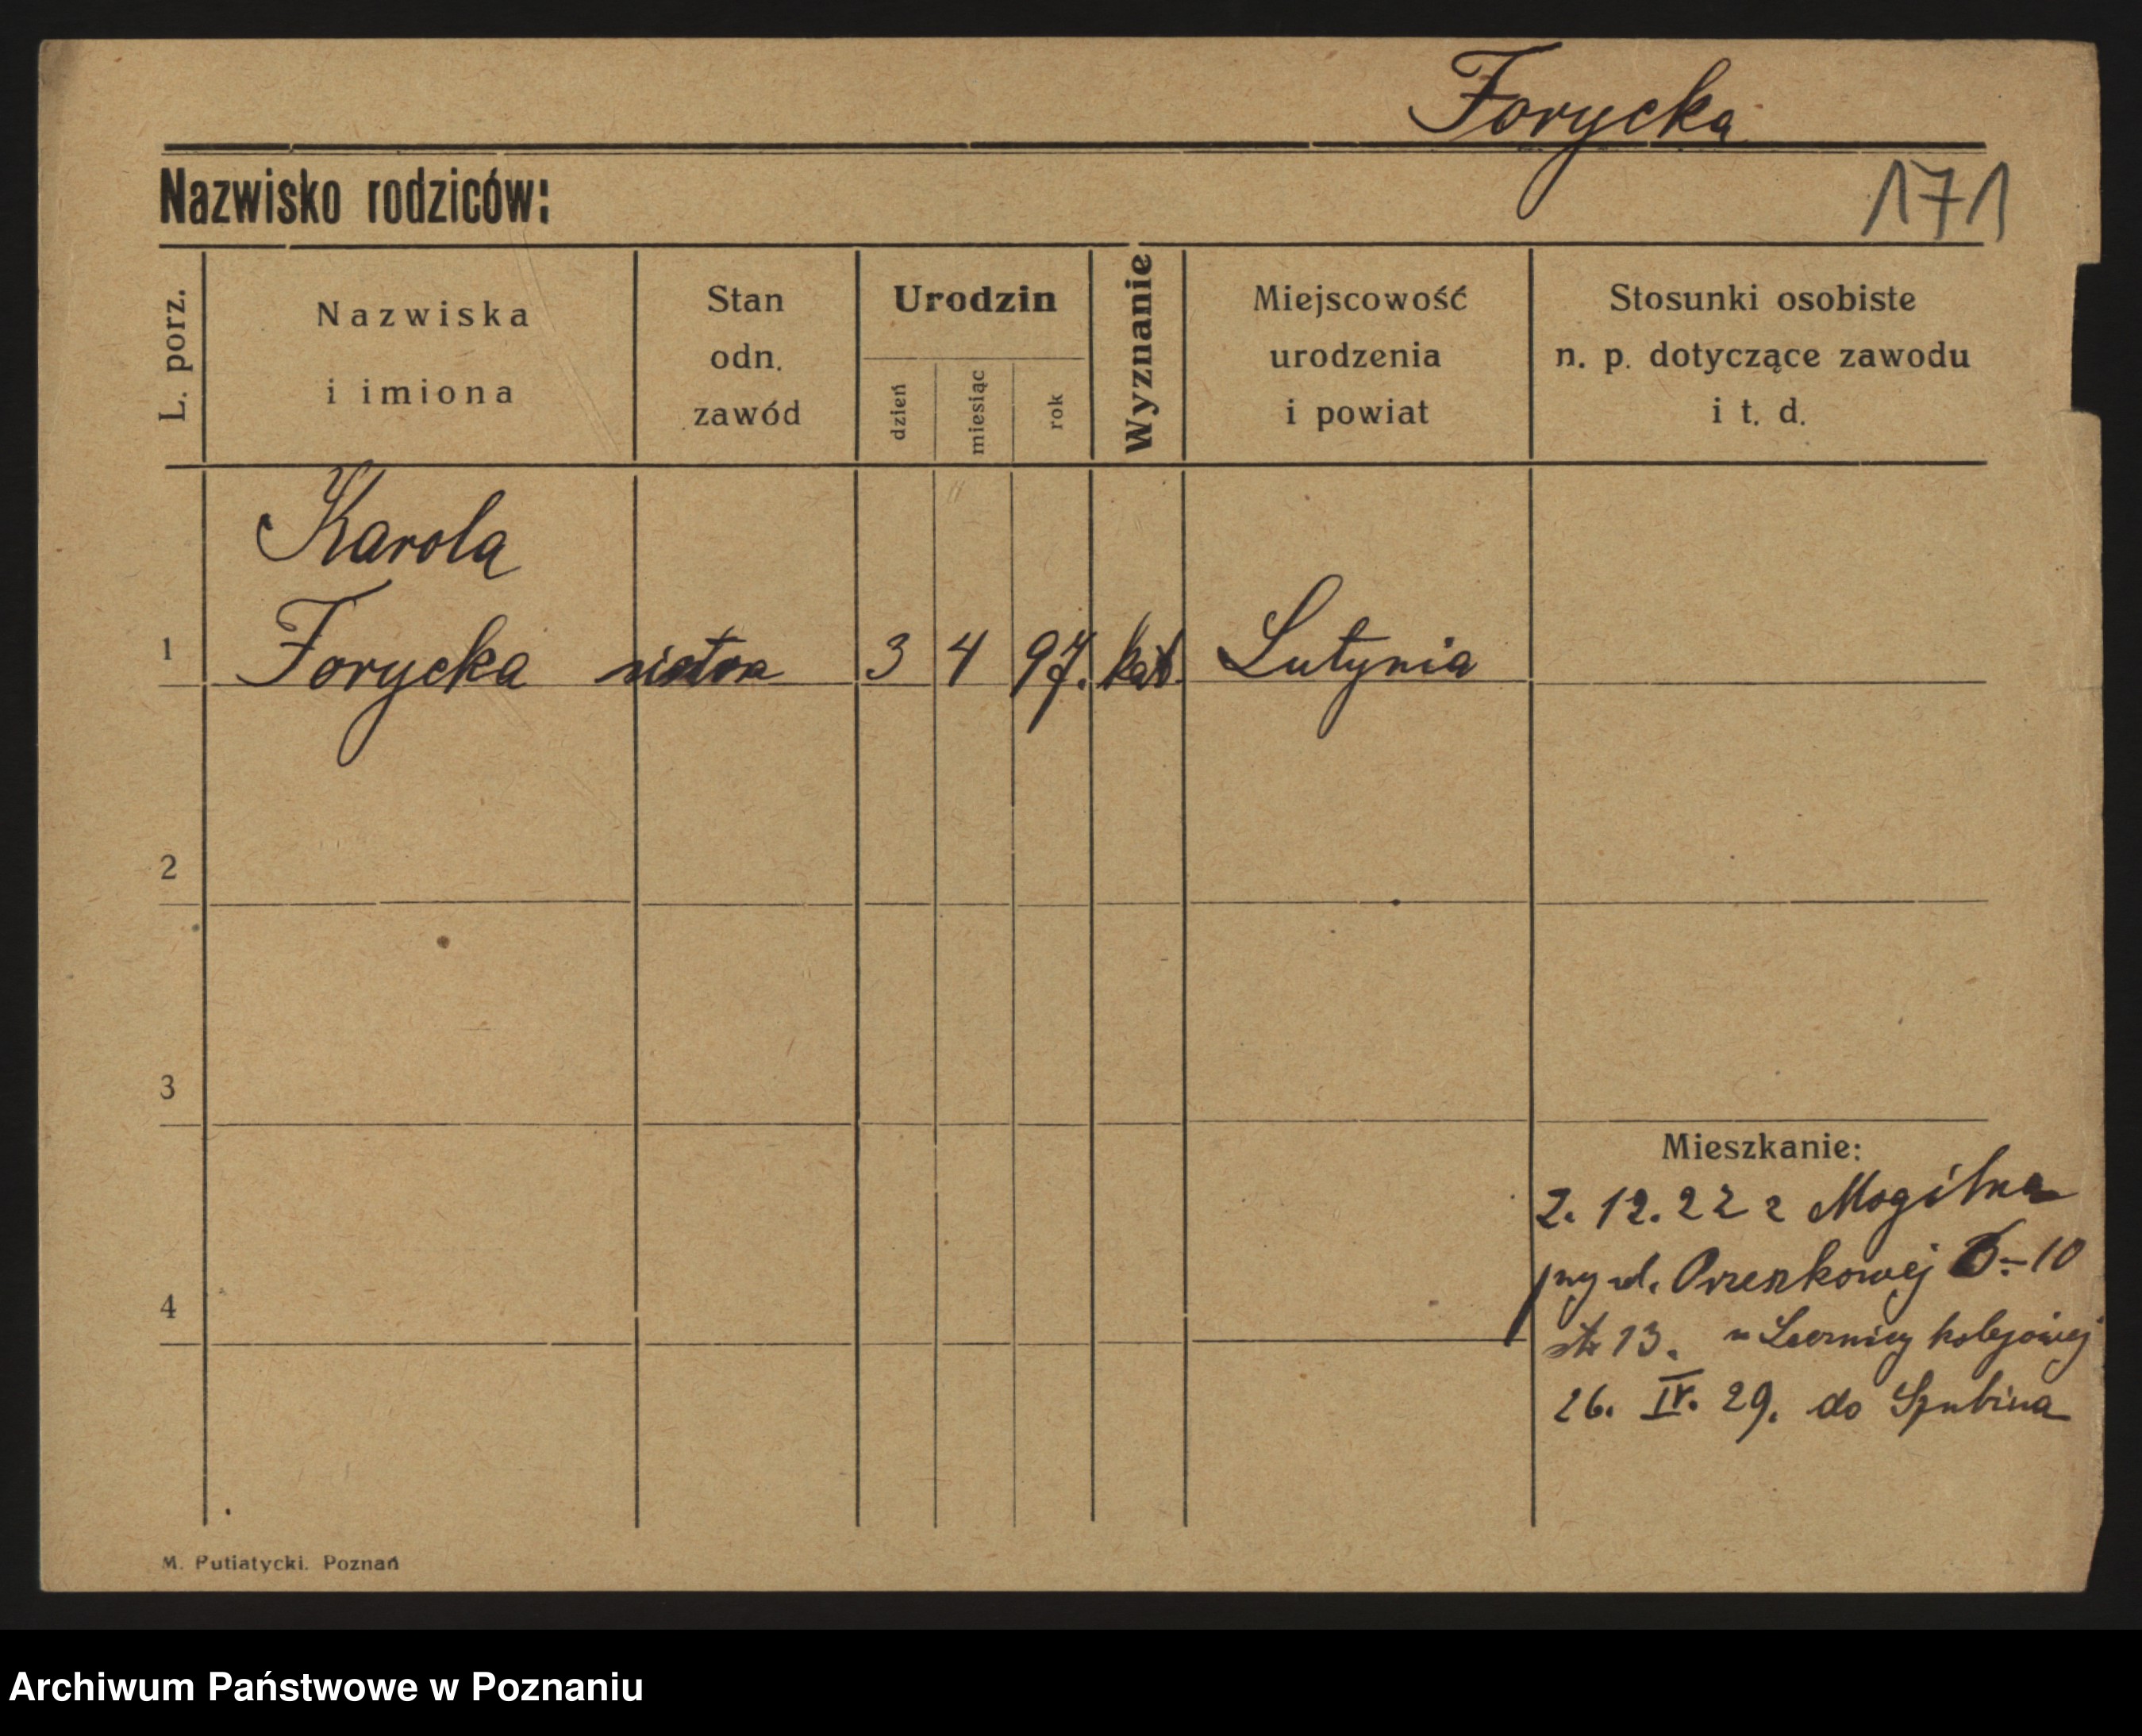 Forycka
Nazwisko rodziców:
171
L. porz.
Nazwiska
i imiona
Stan
odn.
zawód
Urodzin
dzień
miesiąc
rok
Wyznanie
Miejscowość
urodzenia
i powiat
Stosunki osobiste
n. p. dotyczące zawodu
i t. d.
Karola
1 Forycka siostra 3 4 97. kat. Lutynia
2
3
Mieszkanie:
2. 12. 22 z Mogilna
przy ul. Orzeszkowej 8-10
str 13. w Lecznicy kolejowej
4
26. IV. 29. do Szubina
M. Putiatycki. Poznań
Archiwum Państwowe w Poznaniu